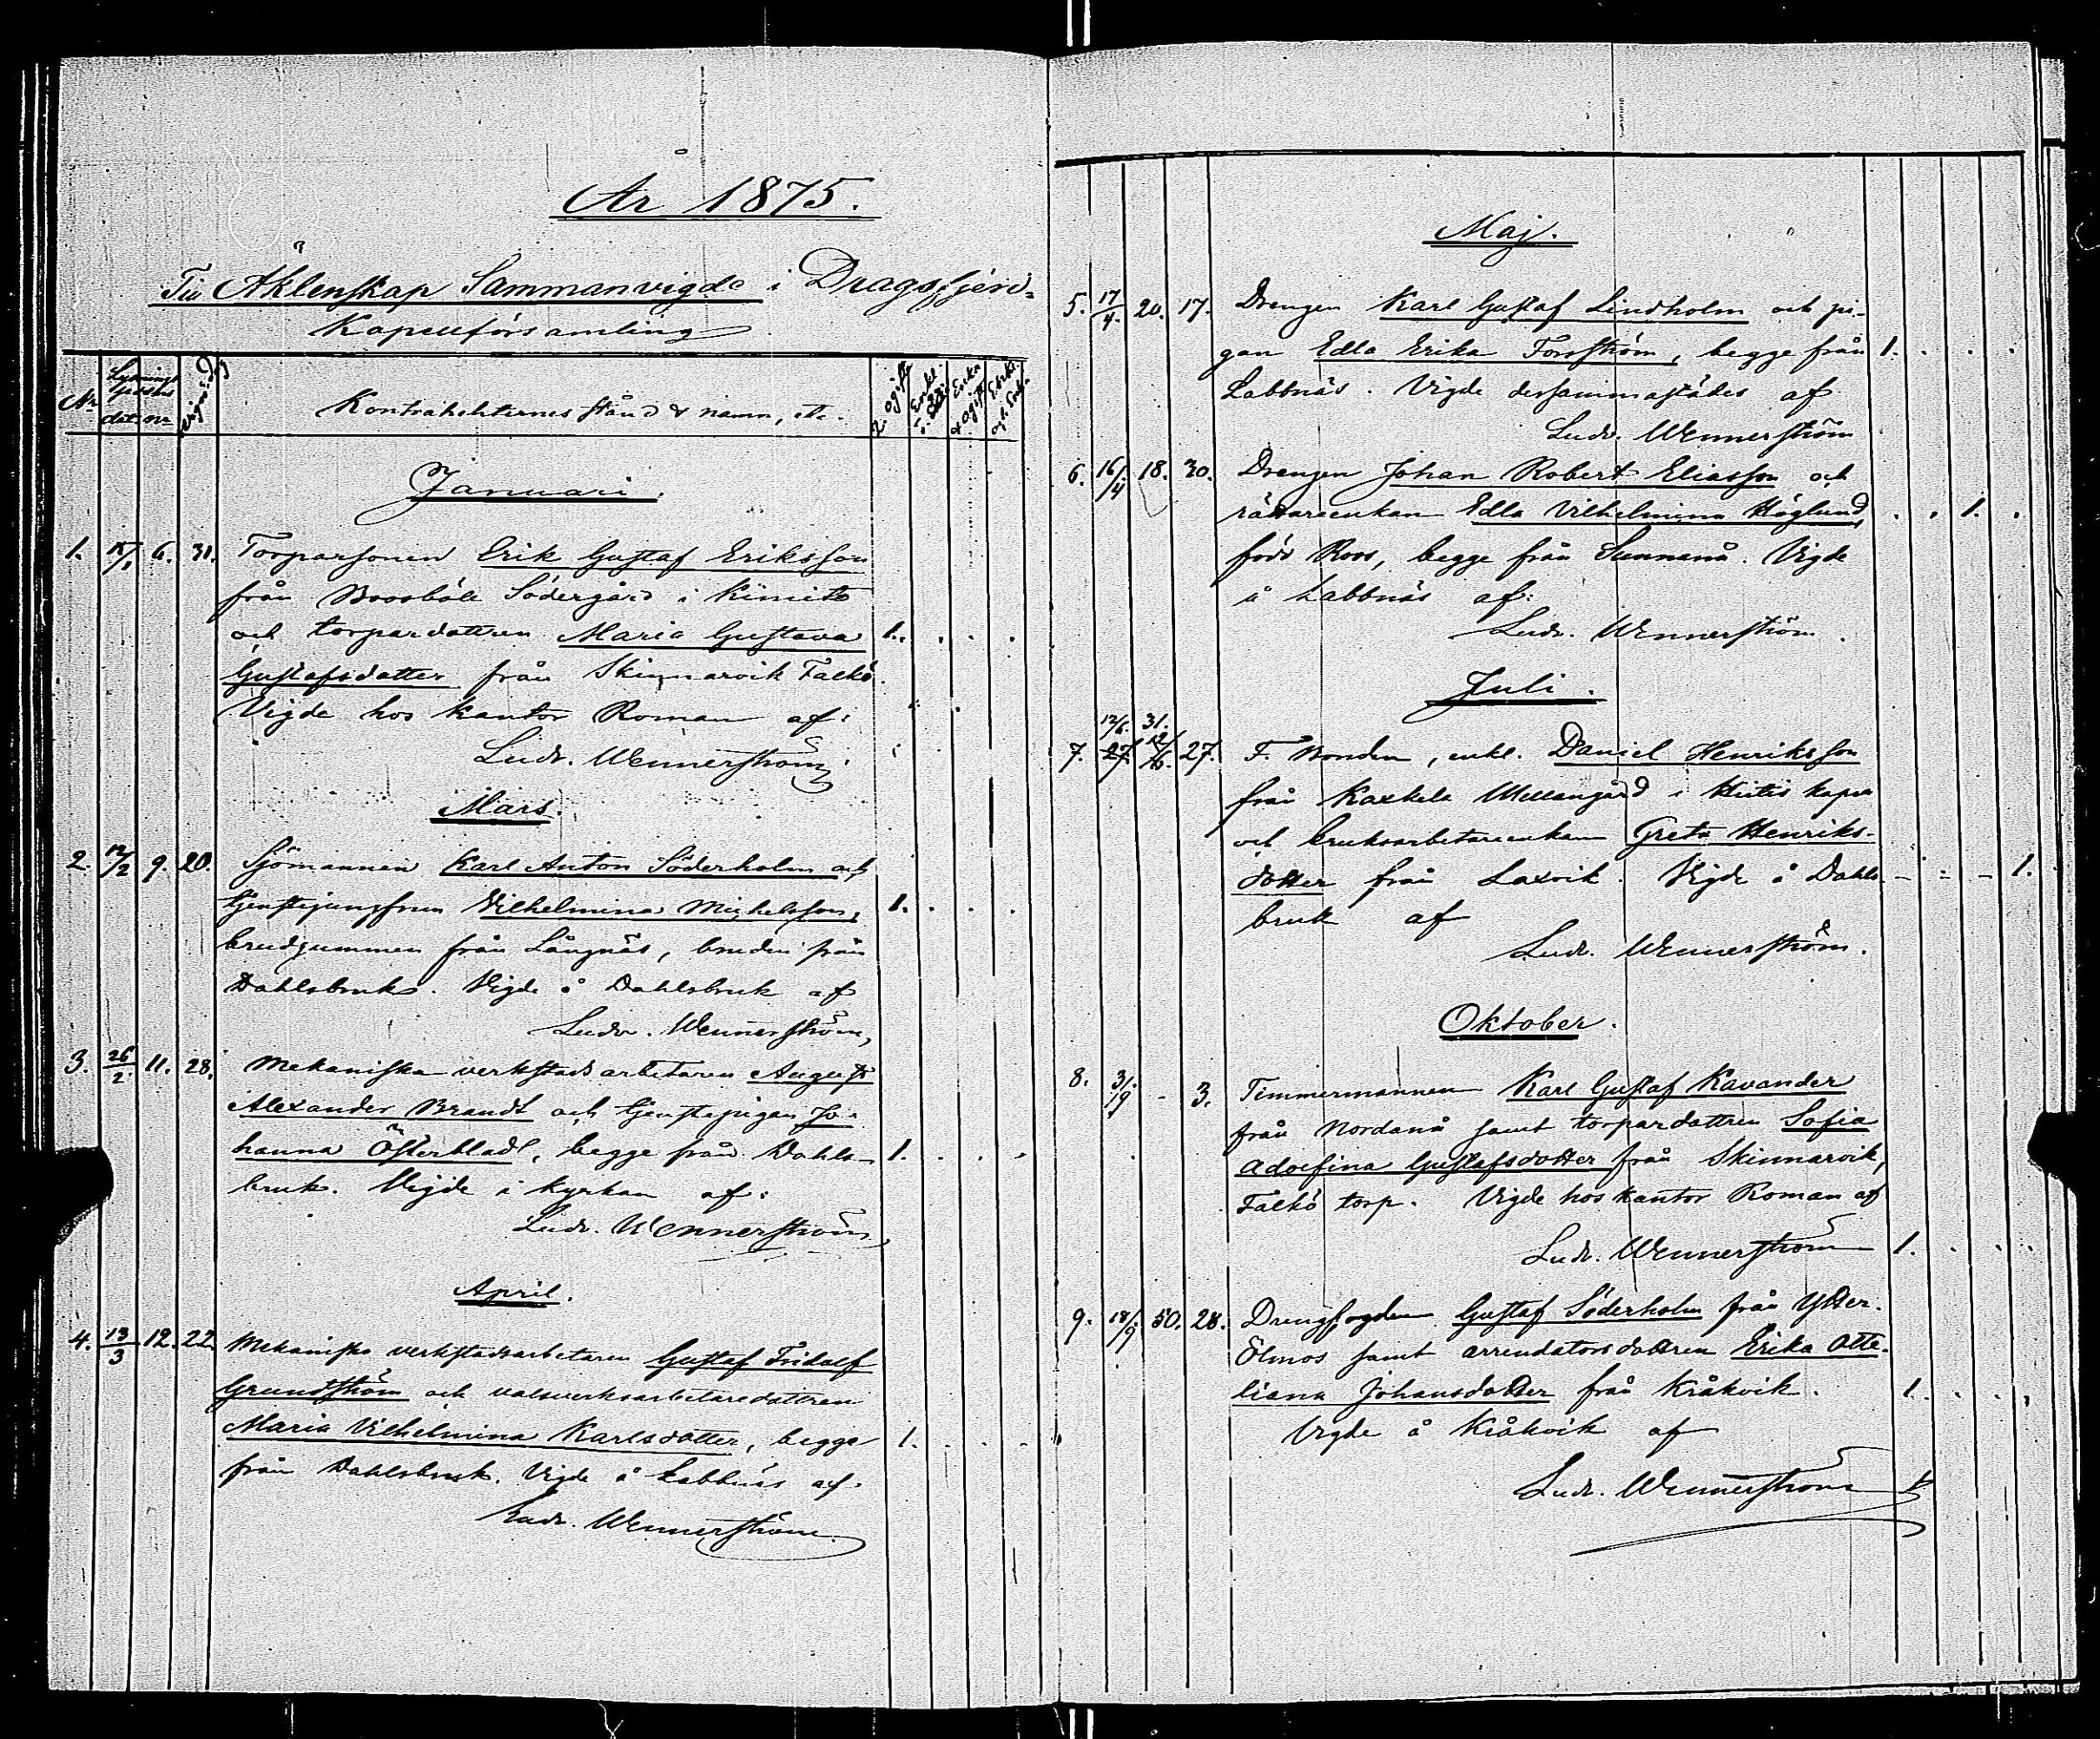 År 1875.
Till Äktenskap Sammanvigde i Dragsfjerds
Kapellförsamling
No
Lysnings
dat. no
Vigns. dag
Kontrahenternes stånd & namn, etc.
2 ogifte
Enkl. o.
Enka & ogift
Enkl. och Enka
Januari.
1. 15/1 6. 31. Torparsonen Erik Gustaf Eriksson
från Boosböle Södergård i Kimito
och torpardottren Maria Gustava 1.
Gustafsdotter från Skinnarvik Falkö.
Vigde hos kantor Roman af:
Ludv. Wennerström
Mars.
2. 12/2 9. 20. Sjömannen Karl Anton Söderholm och
tjenstejungfrun Vilhelmina Michelsson, 1.
brudgummen från Långnäs, bruden från
Dahlsbruk. Vigde å Dahlsbruk af
Ludv. Wennerström,
3. 26/2 11. 28. Mekaniska verkstadsarbetaren August
Alexander Brandt och tjenstepigan Jo-
hanna Österblad, begge från Dahls- 1.
bruk. Vigde i kyrkan af:
Ludv. Wennerström,
April.
4. 13/3 12. 22. Mekaniska verkstadsarbetaren Gustaf Fridolf
Grundström och valsverksarbetaredottren
Maria Vilhelmina Karlsdotter, begge 1.
från Dahlsbruk. Vigde å Labbnäs af.
Ludv. Wennerström.
Maj.
5. 17/4. 20. 17. Drengen Karl Gustaf Lindholm och pi-
gan Edla Erika Forsström, begge från 1.
Labbnäs. Vigde dersammastädes af
Ludv. Wennerström
6. 16/4 18. 30. Drengen Johan Robert Eliasson och
rättareenkan Edla Vilhelmina Höglund, 1.
född Roos, begge från Sunnanå. Vigde
å Labbnäs af:
Ludv. Wennerström.
Juli.
12/6. 31.
7. 27. F. Bonden, enkl. Daniel Henriksson
från Kaxkela Mellangård i Hitis kapell
och bruksarbetareenkan Greta Henriks-
dotter från Laxvik. Vigde å Dahls- 1.
bruk af
Ludv. Wennerström.
Oktober.
8. 3/9 - 3. Timmermannen Karl Gustaf Kavander
från Nordanå samt torpardottren Sofia
Adolfina Gustafsdotter från Skinnarvik,
Falkö torp. Vigde hos kantor Roman af
Ludv. Wennerström 1.
9. 18/9 50. 28. Drengfogden Gustaf Söderholm från Ytter-
Ölmos samt arrendatorsdottren Erika Otte-
liana Johansdotter från Kråkvik. 1.
Vigde å Kråkvik af
Ludv. Wennerström